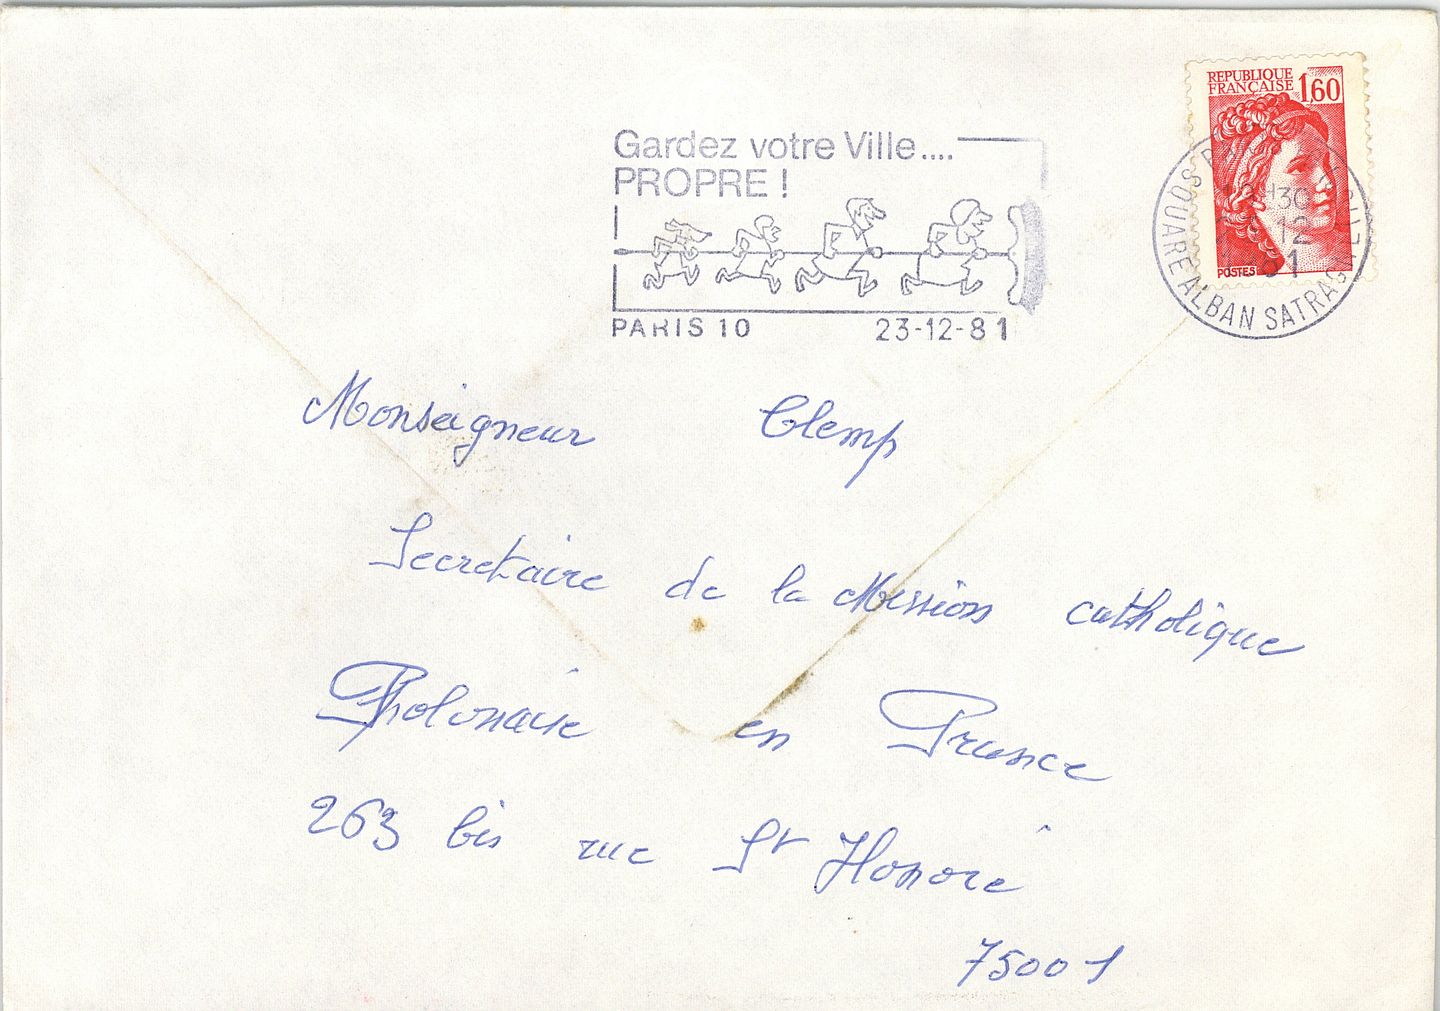 REPUBLIQUE
FRANÇAISE 1,60
POSTES
SQUARE ALBAN SATRAGNE
12
Gardez votre Ville....
PROPRE !
PARIS 10 23-12-81
Monseigneur Clemp
Secretaire de la Mission catholique
Polonaise en France
263 bis rue St Honoré
75001